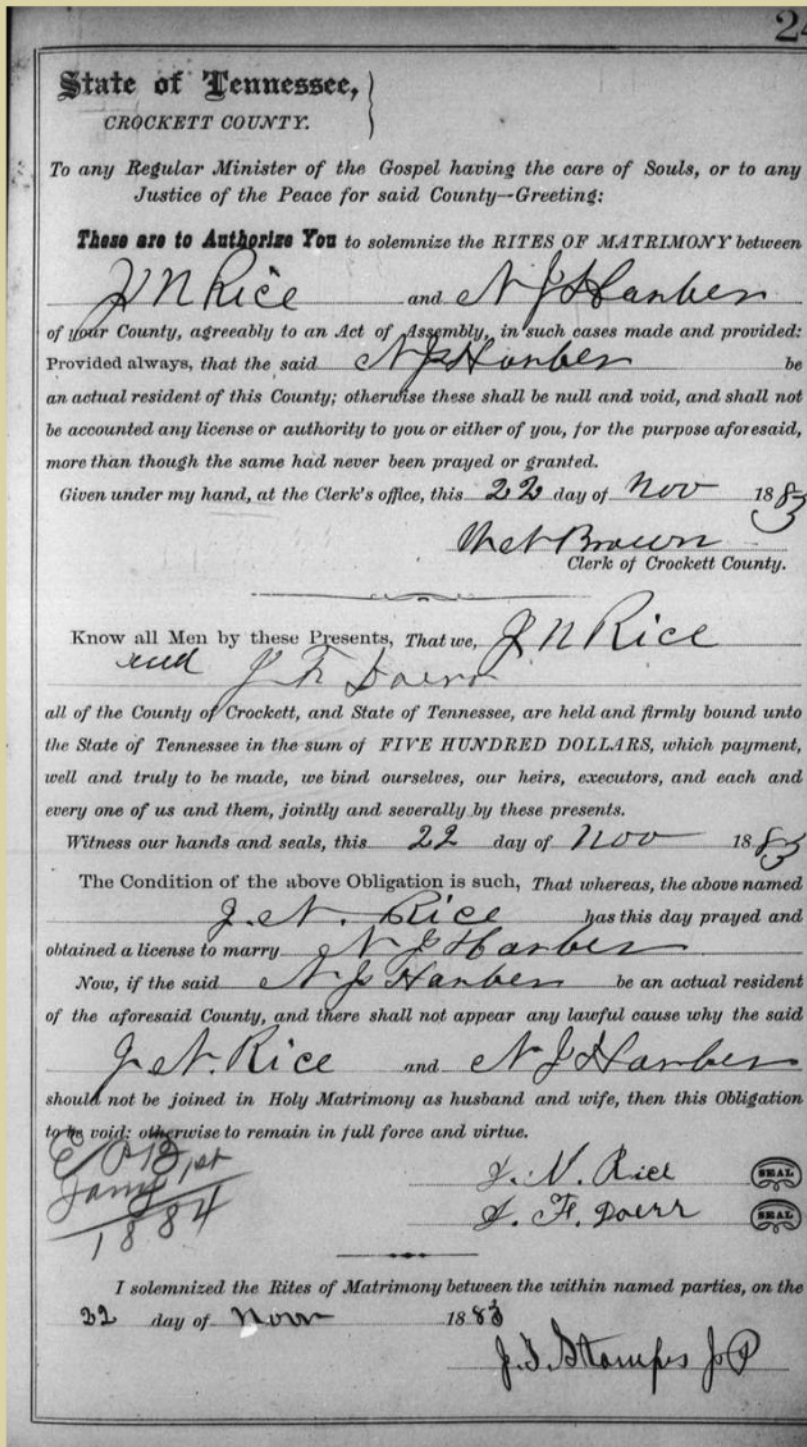 24
State of Tennessee,
CROCKETT COUNTY.
To any Regular Minister of the Gospel having the care of Souls, or to any
Justice of the Peace for said County--Greeting:
These are to Authorize You to solemnize the RITES OF MATRIMONY between
J N Rice and N J Harber
of your County, agreeably to an Act of Assembly, in such cases made and provided:
Provided always, that the said N J Harber be
an actual resident of this County; otherwise these shall be null and void, and shall not
be accounted any license or authority to you or either of you, for the purpose aforesaid,
more than though the same had never been prayed or granted.
Given under my hand, at the Clerk's office, this 22 day of Nov 1883
Brown
Clerk of Crockett County.
Know all Men by these Presents, That we, J N Rice
and J F Doerr
all of the County of Crockett, and State of Tennessee, are held and firmly bound unto
the State of Tennessee in the sum of FIVE HUNDRED DOLLARS, which payment,
well and truly to be made, we bind ourselves, our heirs, executors, and each and
every one of us and them, jointly and severally by these presents.
Witness our hands and seals, this 22 day of Nov 1883
The Condition of the above Obligation is such, That whereas, the above named
J. N. Rice has this day prayed and
obtained a license to marry N J Harber
Now, if the said N J Harber be an actual resident
of the aforesaid County, and there shall not appear any lawful cause why the said
J. N. Rice and N J Harber
should not be joined in Holy Matrimony as husband and wife, then this Obligation
to be void: otherwise to remain in full force and virtue.
1884
J. N. Rice SEAL
J. F. Doerr SEAL
I solemnized the Rites of Matrimony between the within named parties, on the
22 day of Nov 1883
J. T. Stamps J P